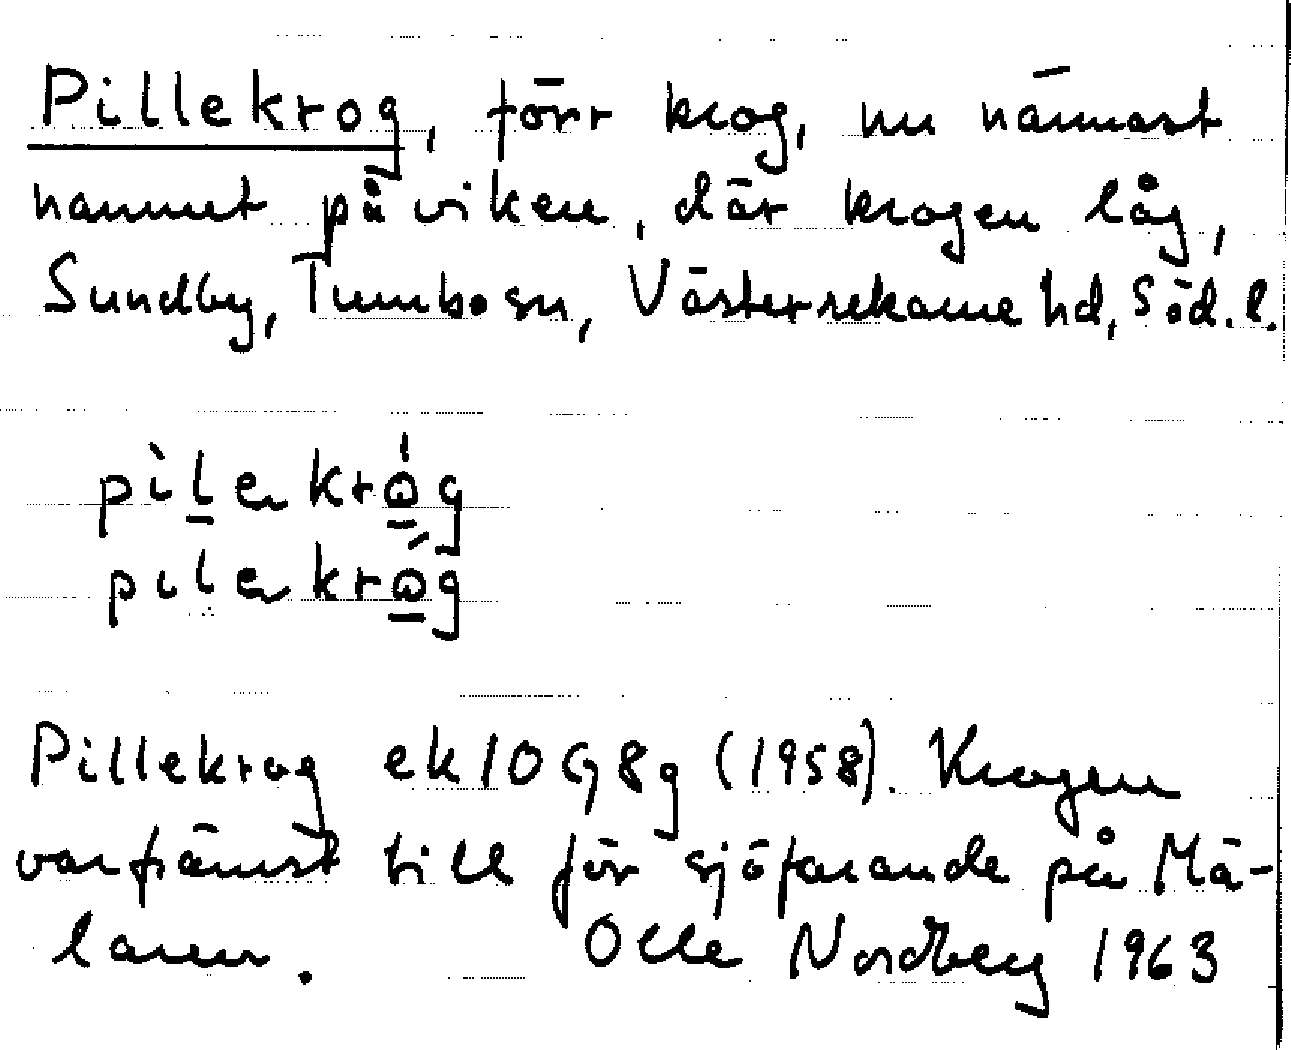 Pillekrog, förr krog, nu närmast
namnet på viken, där krogen låg,
Sundby, Tumbo sn, Västerrekarne hd, Söd. l.
pìlɘkrǫ́g
pilɘkrǫ́g
Pillekrog ek 10 G 8 g (1958). Krogen
var främst till för sjöfarande på Mä-
laren. Olle Nordberg 1963